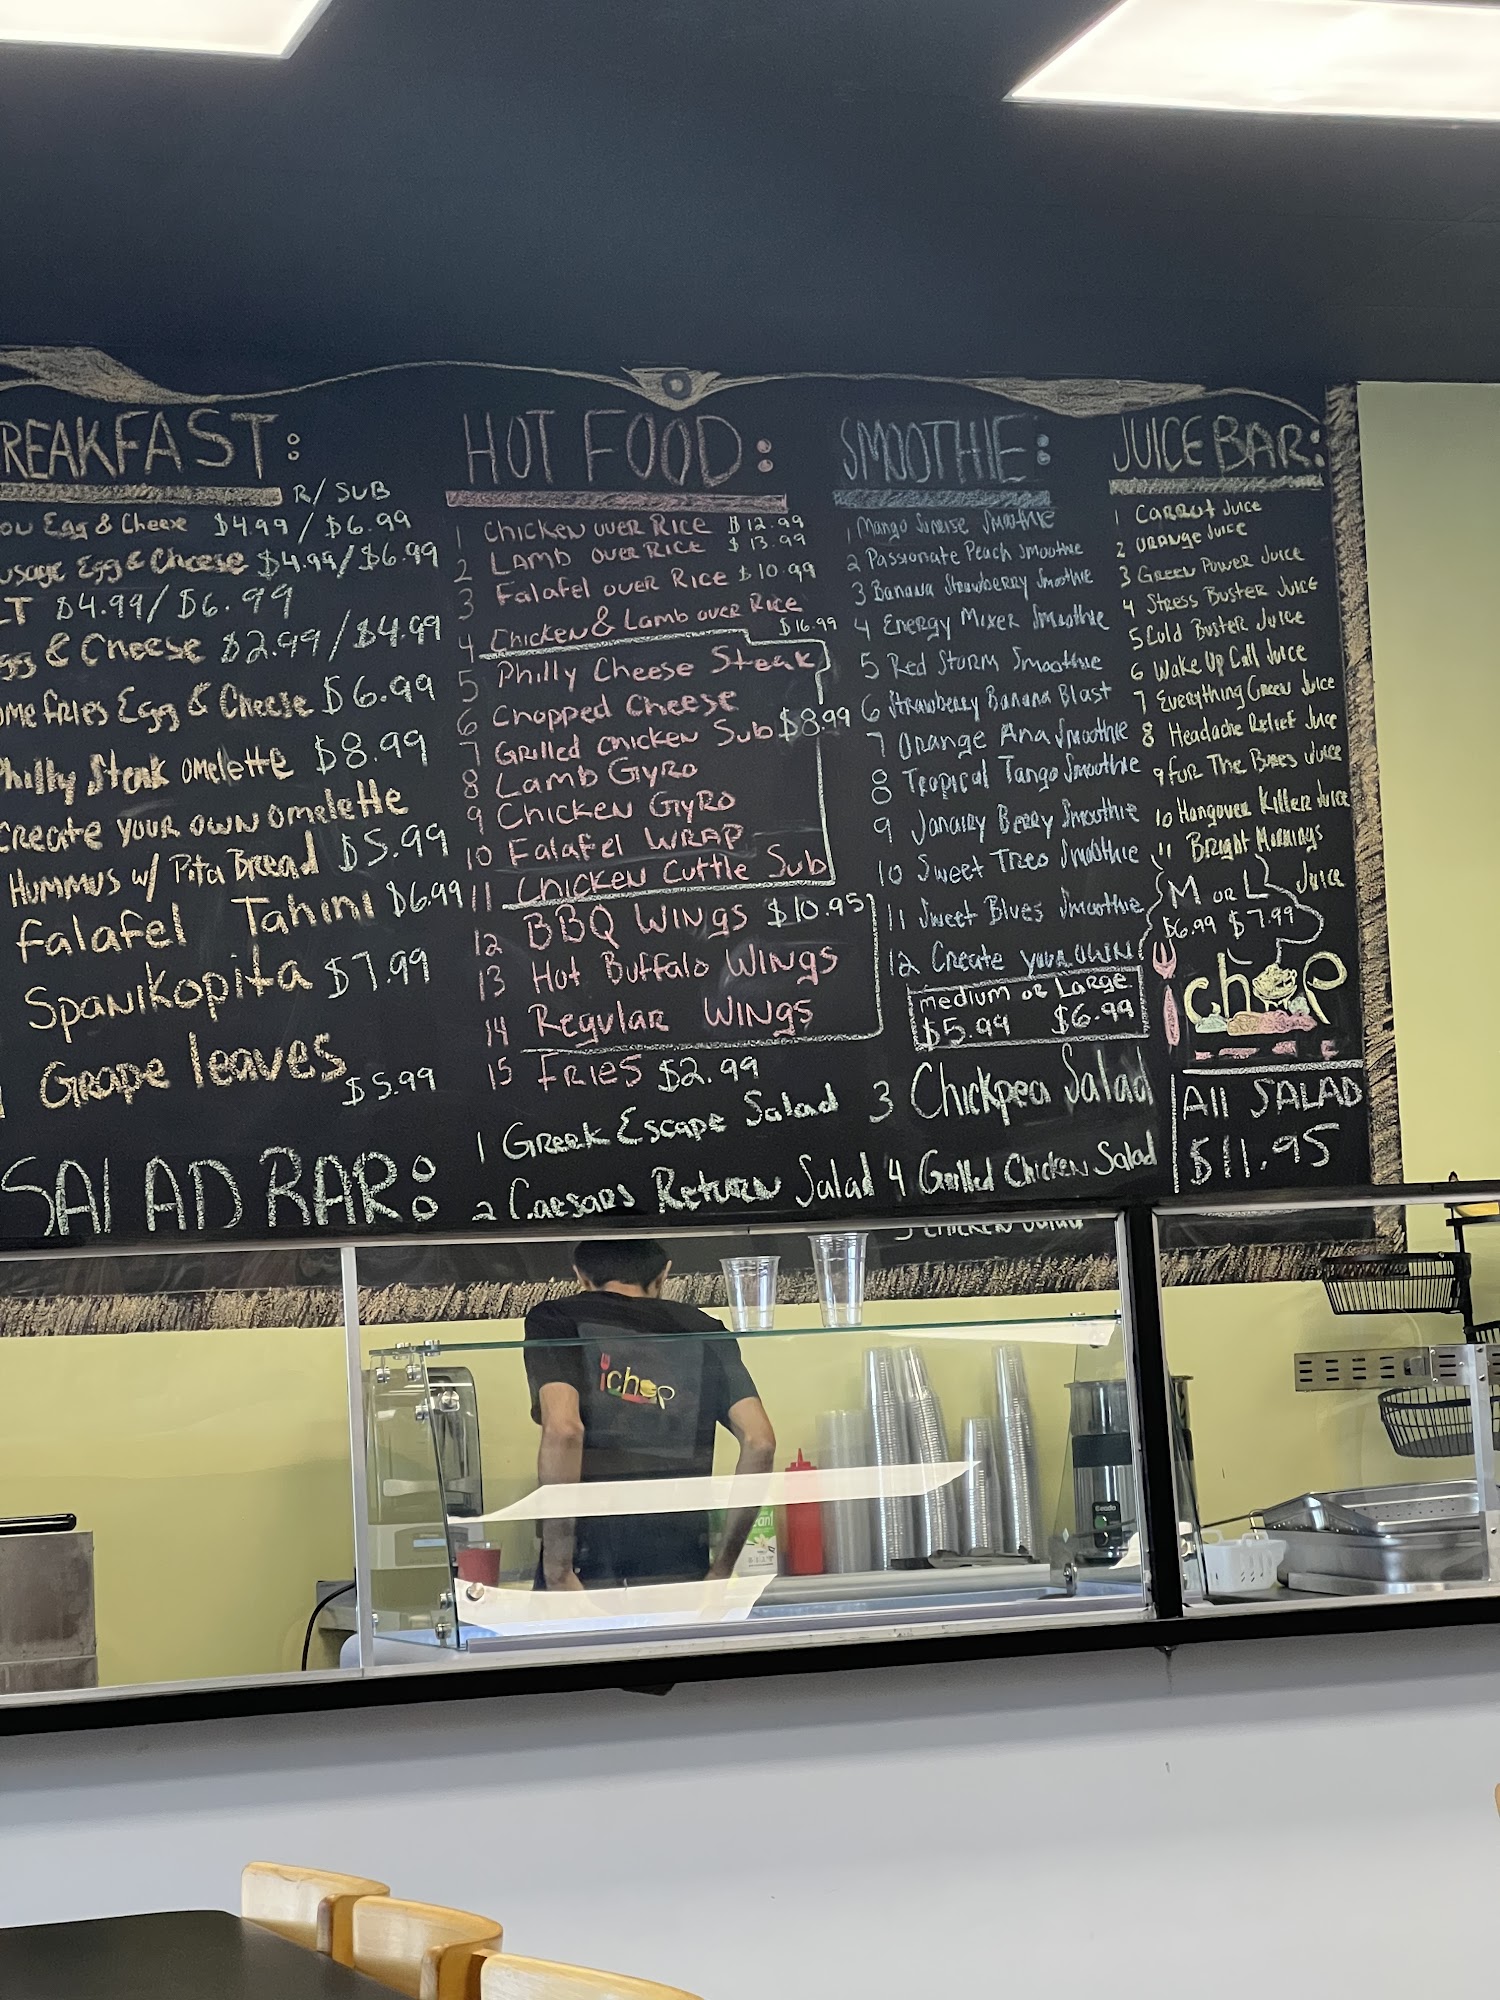 REAKFAST:
R/ SUB
Egg & Cheese $4.99 / $6.99
Egg & Cheese $4.99/$6.99
LT $4.99/$6.99
gg & Cheese $2.99/$4.99
ome fries Egg & Cheese $6.99
Philly Steak omelette $8.99
Create your own omelette
Hummus w/ Pita Bread $5.99
Falafel Tahini $6.99
Spanikopita $7.99
Grape leaves $5.99
HOT FOOD:
1 Chicken over Rice $12.99
2 Lamb over Rice $13.99
3 Falafel over Rice $10.99
4 Chicken & Lamb over Rice $16.99
5 Philly Cheese Steak
6 Chopped Cheese
7 Grilled Chicken Sub $8.99
8 Lamb Gyro
9 Chicken Gyro
10 Falafel Wrap
11 Chicken Cuttle Sub
12 BBQ Wings $10.95
13 Hot Buffalo Wings
14 Regular Wings
15 Fries $2.99
SMOOTHIE:
1 Mango Sunrise Smoothie
2 Passionate Peach Smoothie
3 Banana Strawberry Smoothie
4 Energy Mixer Smoothie
5 Red Storm Smoothie
6 Strawberry Banana Blast
7 Orange Ana Smoothie
8 Tropical Tango Smoothie
9 Janairy Berry Smoothie
10 Sweet Treo Smoothie
11 Sweet Blues Smoothie
12 Create your own
medium or Large
$5.99 $6.99
JUICE BAR:
1 Carrot Juice
2 Orange Juice
3 Green Power Juice
4 Stress Buster Juice
5 Cold Buster Juice
6 Wake Up Call Juice
7 Everything Green Juice
8 Headache Relief Juice
9 For The Bones Juice
10 Hangover Killer Juice
11 Bright Mornings Juice
M or L
$6.99 $7.99
ichop
SALAD BAR:
1 Greek Escape Salad
2 Caesars Return Salad
3 Chickpea Salad
4 Grilled Chicken Salad
5 Chicken Salad
All SALAD
$11.95
ichop